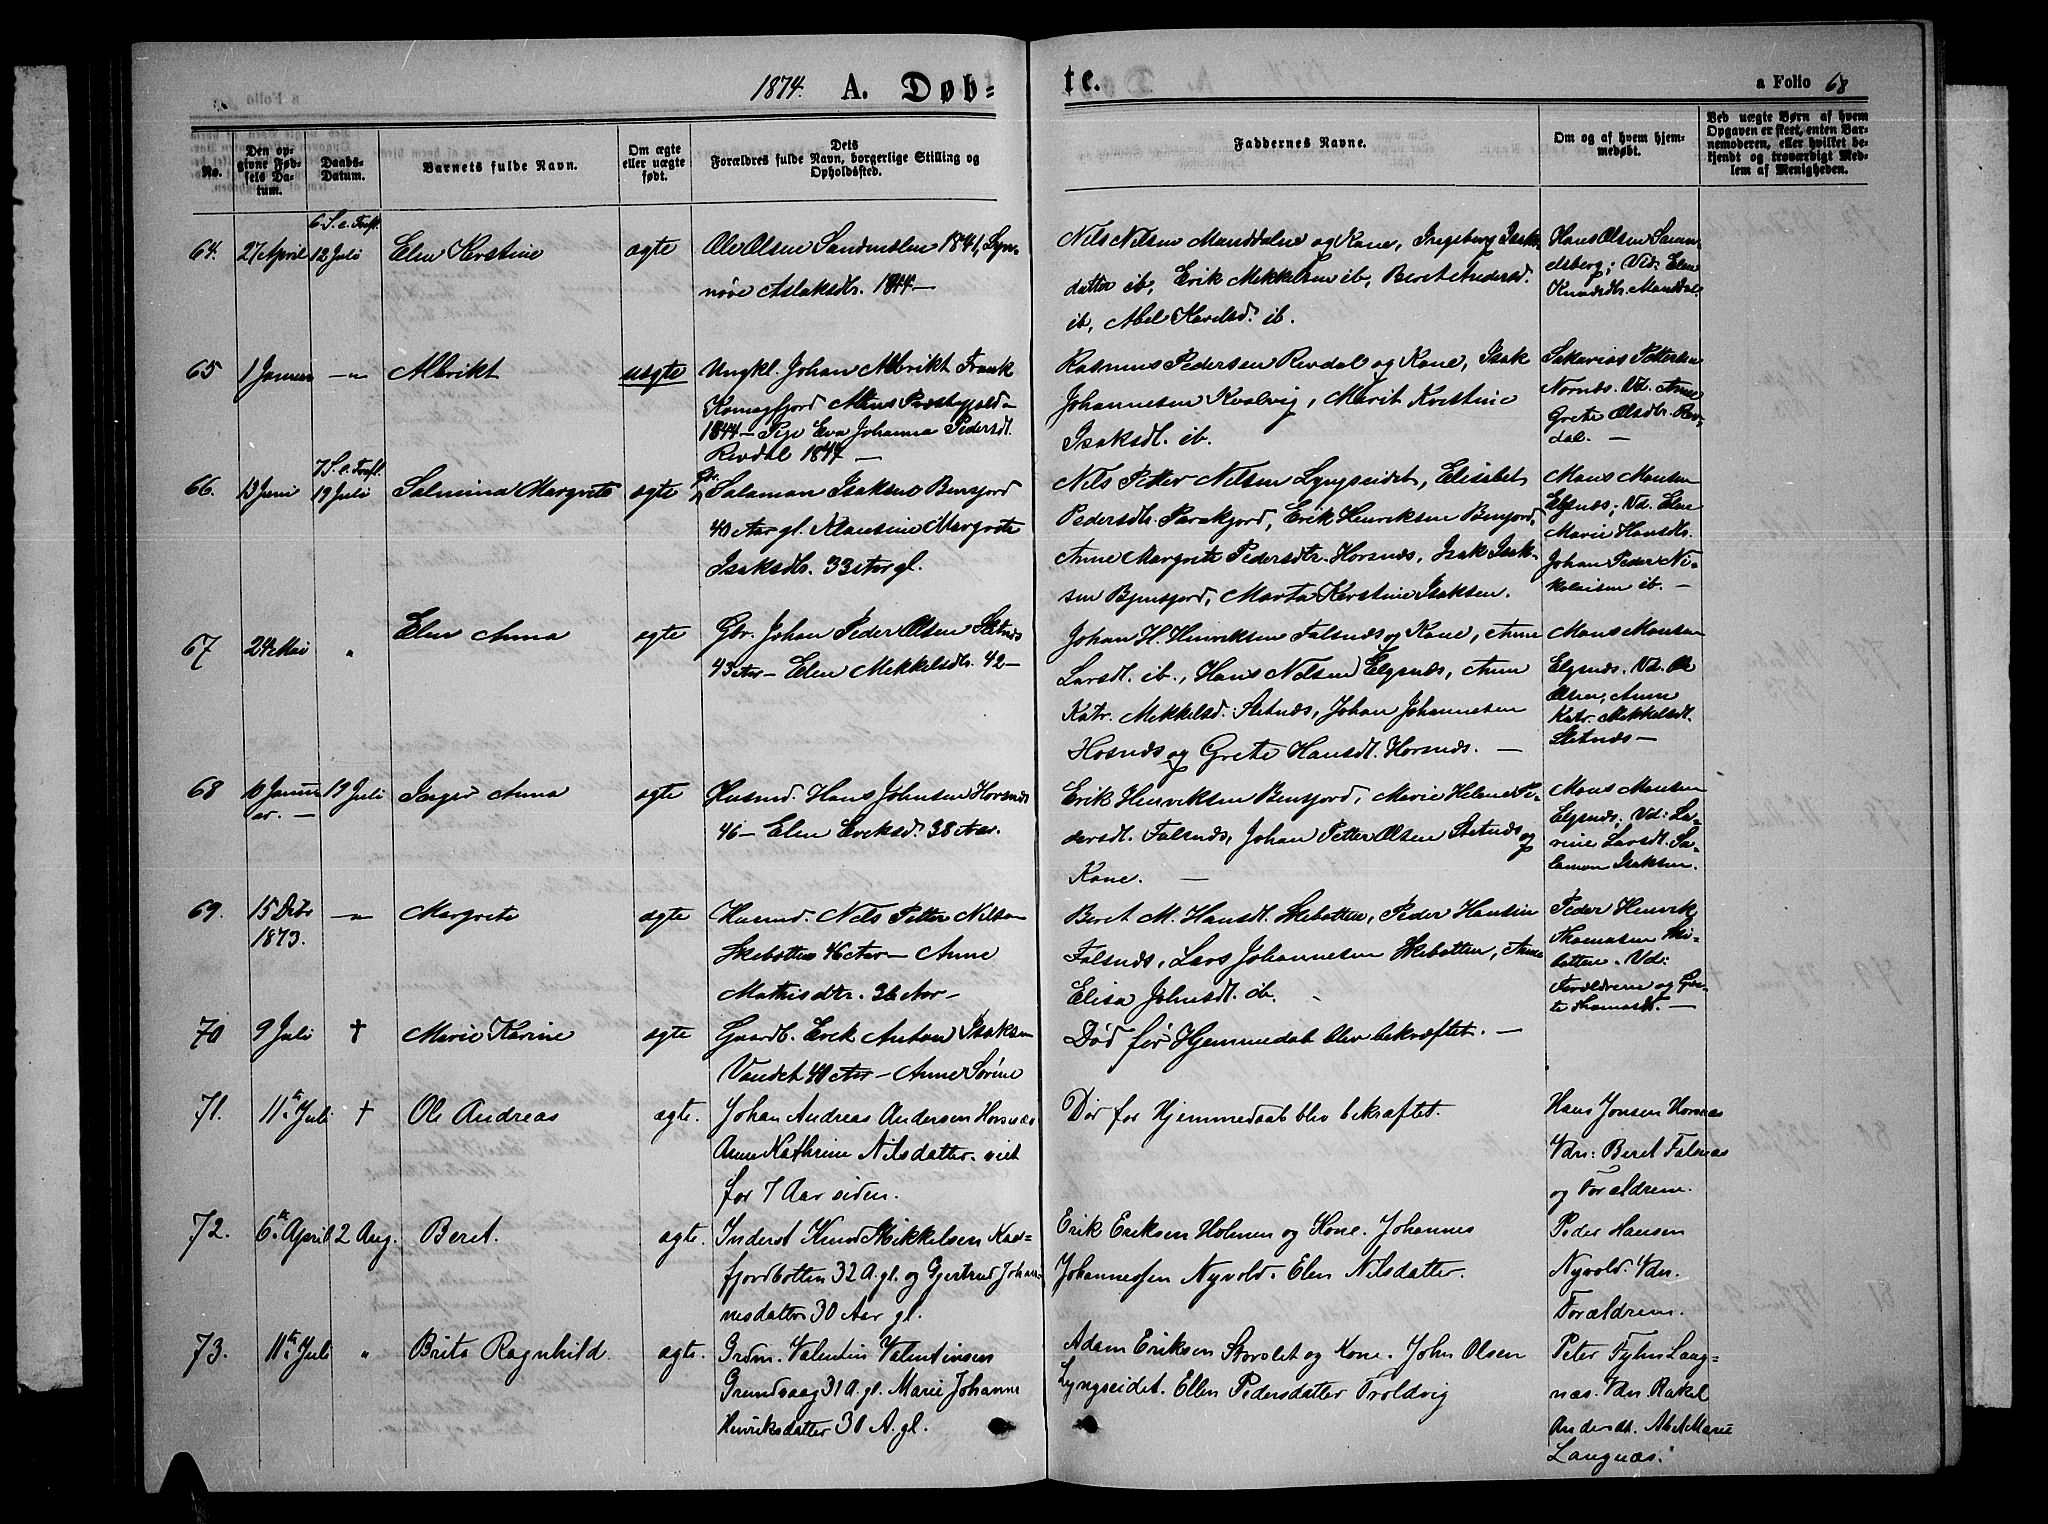 1874. A. Døb-
te.
a Folio 68
No.
Den op-
givne Fød-
sels Da-
tum.
Daabs-
Datum.
Barnets fulde Navn.
Om ægte
eller uægte
født.
Dets
Forældres fulde Navn, borgerlige Stilling og
Opholdssted.
Faddernes Navne.
Om og af hvem hjem-
medøbt.
Ved uægte Børn af hvem
Opgaven er skeet, enten Bar-
nemoderen, eller hvilket be-
kjendt og troværdigt Med-
lem af Menigheden.
6 S. e. Tref.
64. 27 April 12 Juli Elen Kerstine ægte
Ole Olsen Sandmelen 1841, Syn-
növe Aslaksdtr. 1844 —
Nils Nilsen Manddalen og Kone, Ingeborg Isaks-
datter ib, Erik Mikkelsen ib, Beret Andersd.
ib, Abel Karelsd. ib.
Hans Olsen Samu-
elsberg; Vid: Elen
Knudsdtr. Manddal.
65 1 Januar — " Albrikt uægte
Ungkl. Johan Albrikt Frank
Komagfjord Altens Præstegjeld
1844 — Pige Eva Johanna Pedersdt.
Revdal 1847 —
Rasmus Pedersen Revdal og Kone, Isak
Johannesen Kvalvig, Marit Kristine
Isaksdt. ib.
Sakarias Pettersen
Nornæs. Vd. Anne
Grete Olsdtr. Rev-
dal. —
7 S. e. Tref.
66. 13 Juni 19 Juli Salmina Margrete ægte
Salamon Isaksen Bensjord
40 Aar gl. Klausine Margrete
Isaksdtr. 33 Aar gl.
Nils Petter Nilsen Lyngseidet, Elisabet
Pedersdtr. Parakjord, Erik Henriksen Bensjord,
Anne Margrete Pedersdtr. Horsnæs, Isak Isak-
sen Bjensjord, Marta Kerstine Isaksen.
Mons Monsen
Elgsnæs; Vd. Elen
Marie Hansdtr.
Johan Peder Ni-
kolaisen ib. —
67 24 Mai " Elen Anna ægte
Gbr. Johan Peder Olsen Sletnæs
43 Aar — Elen Mikkelsdtr. 42 —
Johan H. Henriksen Falsnæs og Kone, Anne
Larsdt. ib., Hans Nilsen Elgsnæs, Anne
Katr. Mikkelsd. Sletnæs, Johan Johannesen
Hosnæs og Grete Hansdt. Horsnæs. —
Mons Monsen
Elgsnæs. Vd. Ole
Olsen, Anne
Katr. Mikkelsdt.
Sletnæs —
68 10 Janu- 19 Juli Inger Anna ægte
ar. —
Husmd. Hans Johnsen Horsnæs
46 — Elen Eriksd. 38 Aar.
Erik Henriksen Bensjord, Marie Helene Pe-
dersdt. Falsnæs, Johan Petter Olsen Sletnæs og
Kone. —
Mons Monsen
Elgsnæs; Vd: La-
rine Larsdt. Sa-
lamon Isaksen.
69. 15 Debr — " Margrete ægte
1873.
Husmd. Nils Petter Nilsen
Skibotten 46 Aar — Anne
Mathisdtr. 36 Aar —
Beret M. Hansdt. Skibotten, Peder Hansen
Falsnæs, Lars Johannesen Skibotten, Anne
Elisa Johnsdt. ib.
Peder Henrik
Thomasen Ski-
botten. Vd:
Forældrene og Gre-
te Thomasdt. —
70 9 Juli † Marie Karine ægte
Gaardb. Erik Anton Isaksen
Vandet 40 Aar — Anne Sørine
Død før Hjemmedab blev bekræftet. —
71. 11te Juli † Ole Andreas ægte.
Johan Andreas Andersen Horsnæs
Anne Kathrine Nilsdatter. viet
for 7 Aar siden.
Dør før Hjemmedaab blev bekræftet.
Hans Jonsen Horsnæs
Vdn: Beret Falsnæs
og Forældrene.
72. 6te April 2 Aug. Beret. ægte.
Inderst Knud Mikkelsen Kaa-
fjordbotten 32 A. gl. og Gjertrud Johan-
nesdatter 30 Aar gl.
Erik Eriksen Holmen og Kone. Johannes
Johannessen Nyvold. Elen Nilsdatter.
Peder Hansen
Nyvold. Vdn.
Forældrene.
73. 11te Juli " Brita Ragnhild. ægte.
Grdm. Valentin Valentinsen
Grundvaag 31 A. gl. Marie Johanne
Henriksdatter 30 A. gl.
Adam Eriksen Storslet og Kone. John Olsen
Lyngseidet. Ellen Pedersdatter Troldvig
Peter Fyhn Lang-
næs. Vdn. Rakel
Andersdt. Abel Marie
Langnæs.